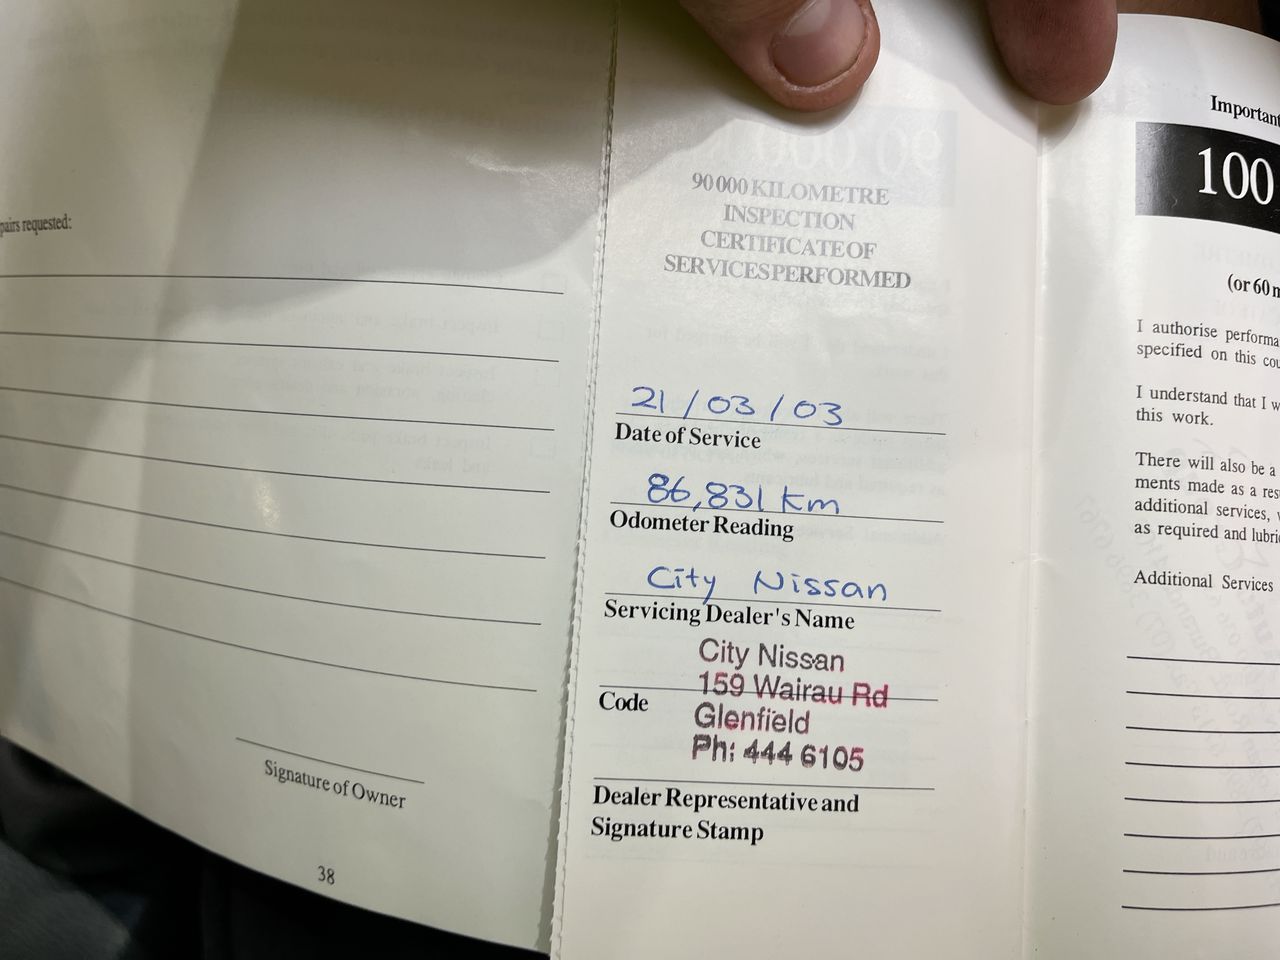 pairs requested:
Signature of Owner
38
90 000 KILOMETRE
INSPECTION
CERTIFICATE OF
SERVICES PERFORMED
21/03/03
Date of Service
86,831 km
Odometer Reading
City Nissan
Servicing Dealer's Name
City Nissan
159 Wairau Rd
Code
Glenfield
Ph: 444 6105
Dealer Representative and
Signature Stamp
Important
100
(or 60 m
I authorise performa
specified on this cou
I understand that I w
this work.
There will also be a
ments made as a res
additional services,
as required and lubri
Additional Services